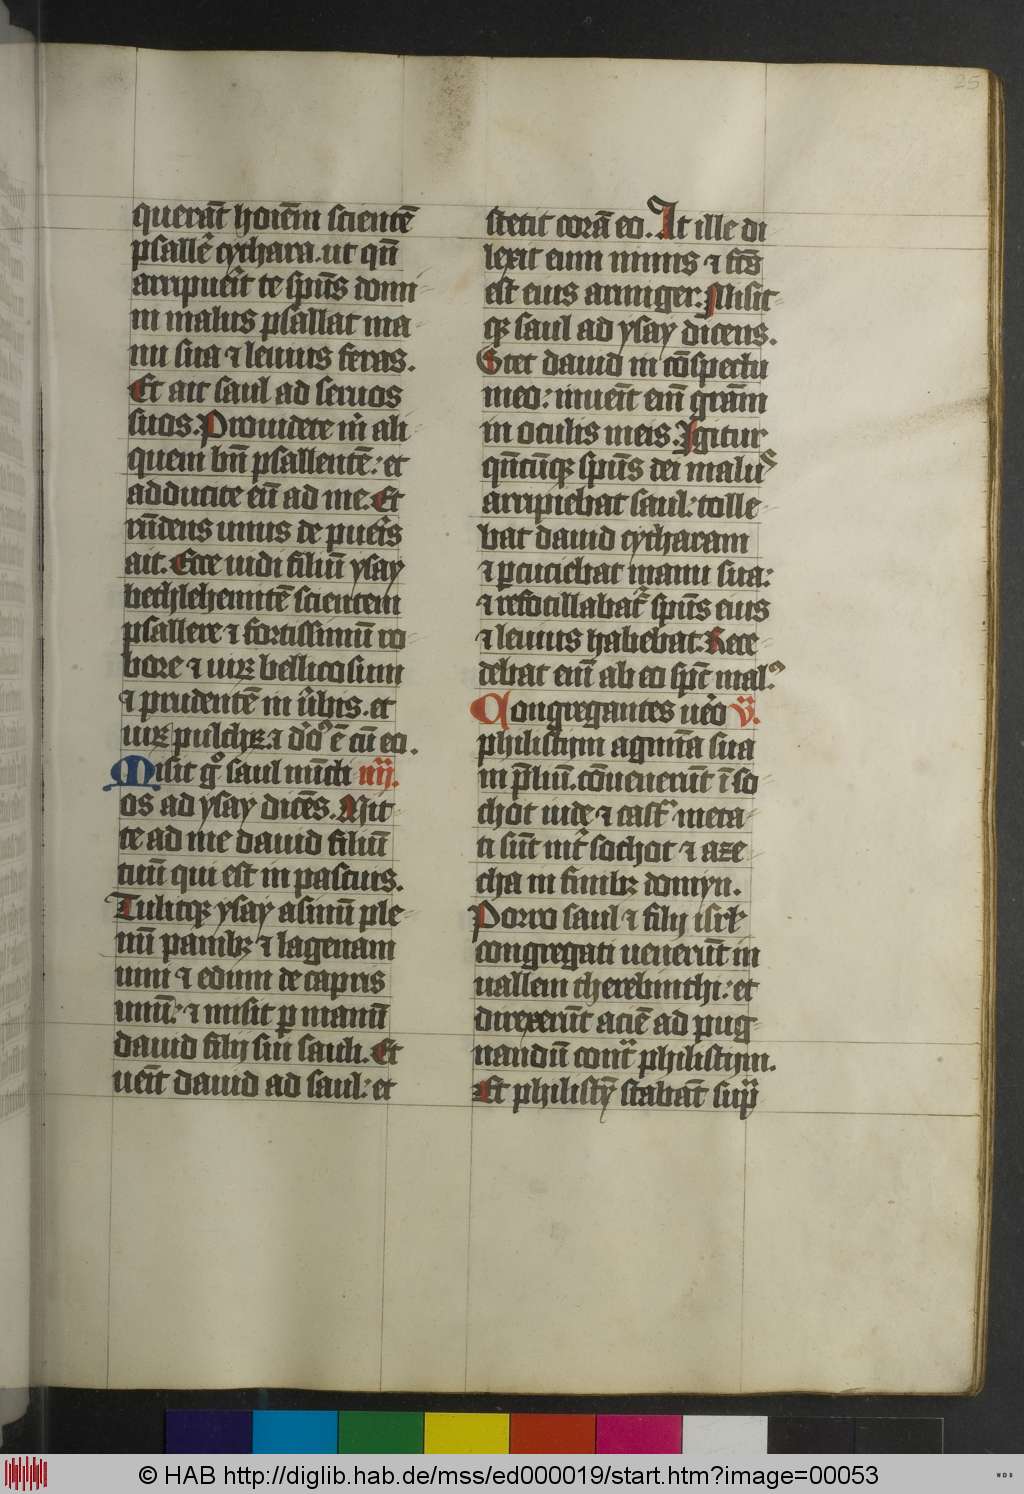 25
querāt hoiēm scientē
psallē cythara. ut qn̄
arripuerit te spūs domi
ni malus psallat ma
nu sua ⁊ leuius feras.
Et ait saul ad seruos
suos. Prouidete m̄ ali
quem bn̄ psallentē: et
adducite eū ad me. Et
rn̄dens unus de pueris
ait. Ecce uidi filiū ysay
bethlehemitē scientem
psallere ⁊ fortissimū ro
bore ⁊ uirꝫ bellicosum
⁊ prudentē in ūbis. et
uirꝫ pulchꝝ. ⁊ dōs ē cū eo.
Misit gͦ saul nūcti iiij.
os ad ysay dicēs. Mit
te ad me dauid filiū
tuū qui est in pascuis.
Tulitqꝫ ysay asinū ple
nū panibꝫ ⁊ lagenam
uini ⁊ edum de capris
unū: ⁊ misit ꝑ manū
dauid filij sui sauli. Et
uēit dauid ad saul: et
stetit corā eo. At ille di
lexit eum nimis ⁊ fcs̄
est eius armiger. Misit
qꝫ saul ad ysay dicens.
Stet dauid in cōspectu
meo: inuēit eni᷒ grām
in oculis meis. Igitur
qn̄cūqꝫ spūs dei malus
arripiebat saul: tolle
bat dauid cytharam
⁊ ꝑcuciebat manu sua:
⁊ refocillabat᷒ spūs eius
⁊ leuius habebat. Rece
debat eni᷒ ab eo spc̄ malꝰ
Congregantes uēo v.
philistijm agmīa sua
in p̄liū. cōuenerūt ī so
chot iude ⁊ cast᷒ meta
ti sūt int᷒ sochot ⁊ aze
cha in finibꝫ domyn.
Porro saul ⁊ filij isrl̄
congregati uenerūt in
uallem therebinthi: et
direxerūt aciē ad pug
nandū cont᷒ philistijm.
Et philisty᷒ stabāt suꝑ
© HAB http://diglib.hab.de/mss/ed000019/start.htm?image=00053